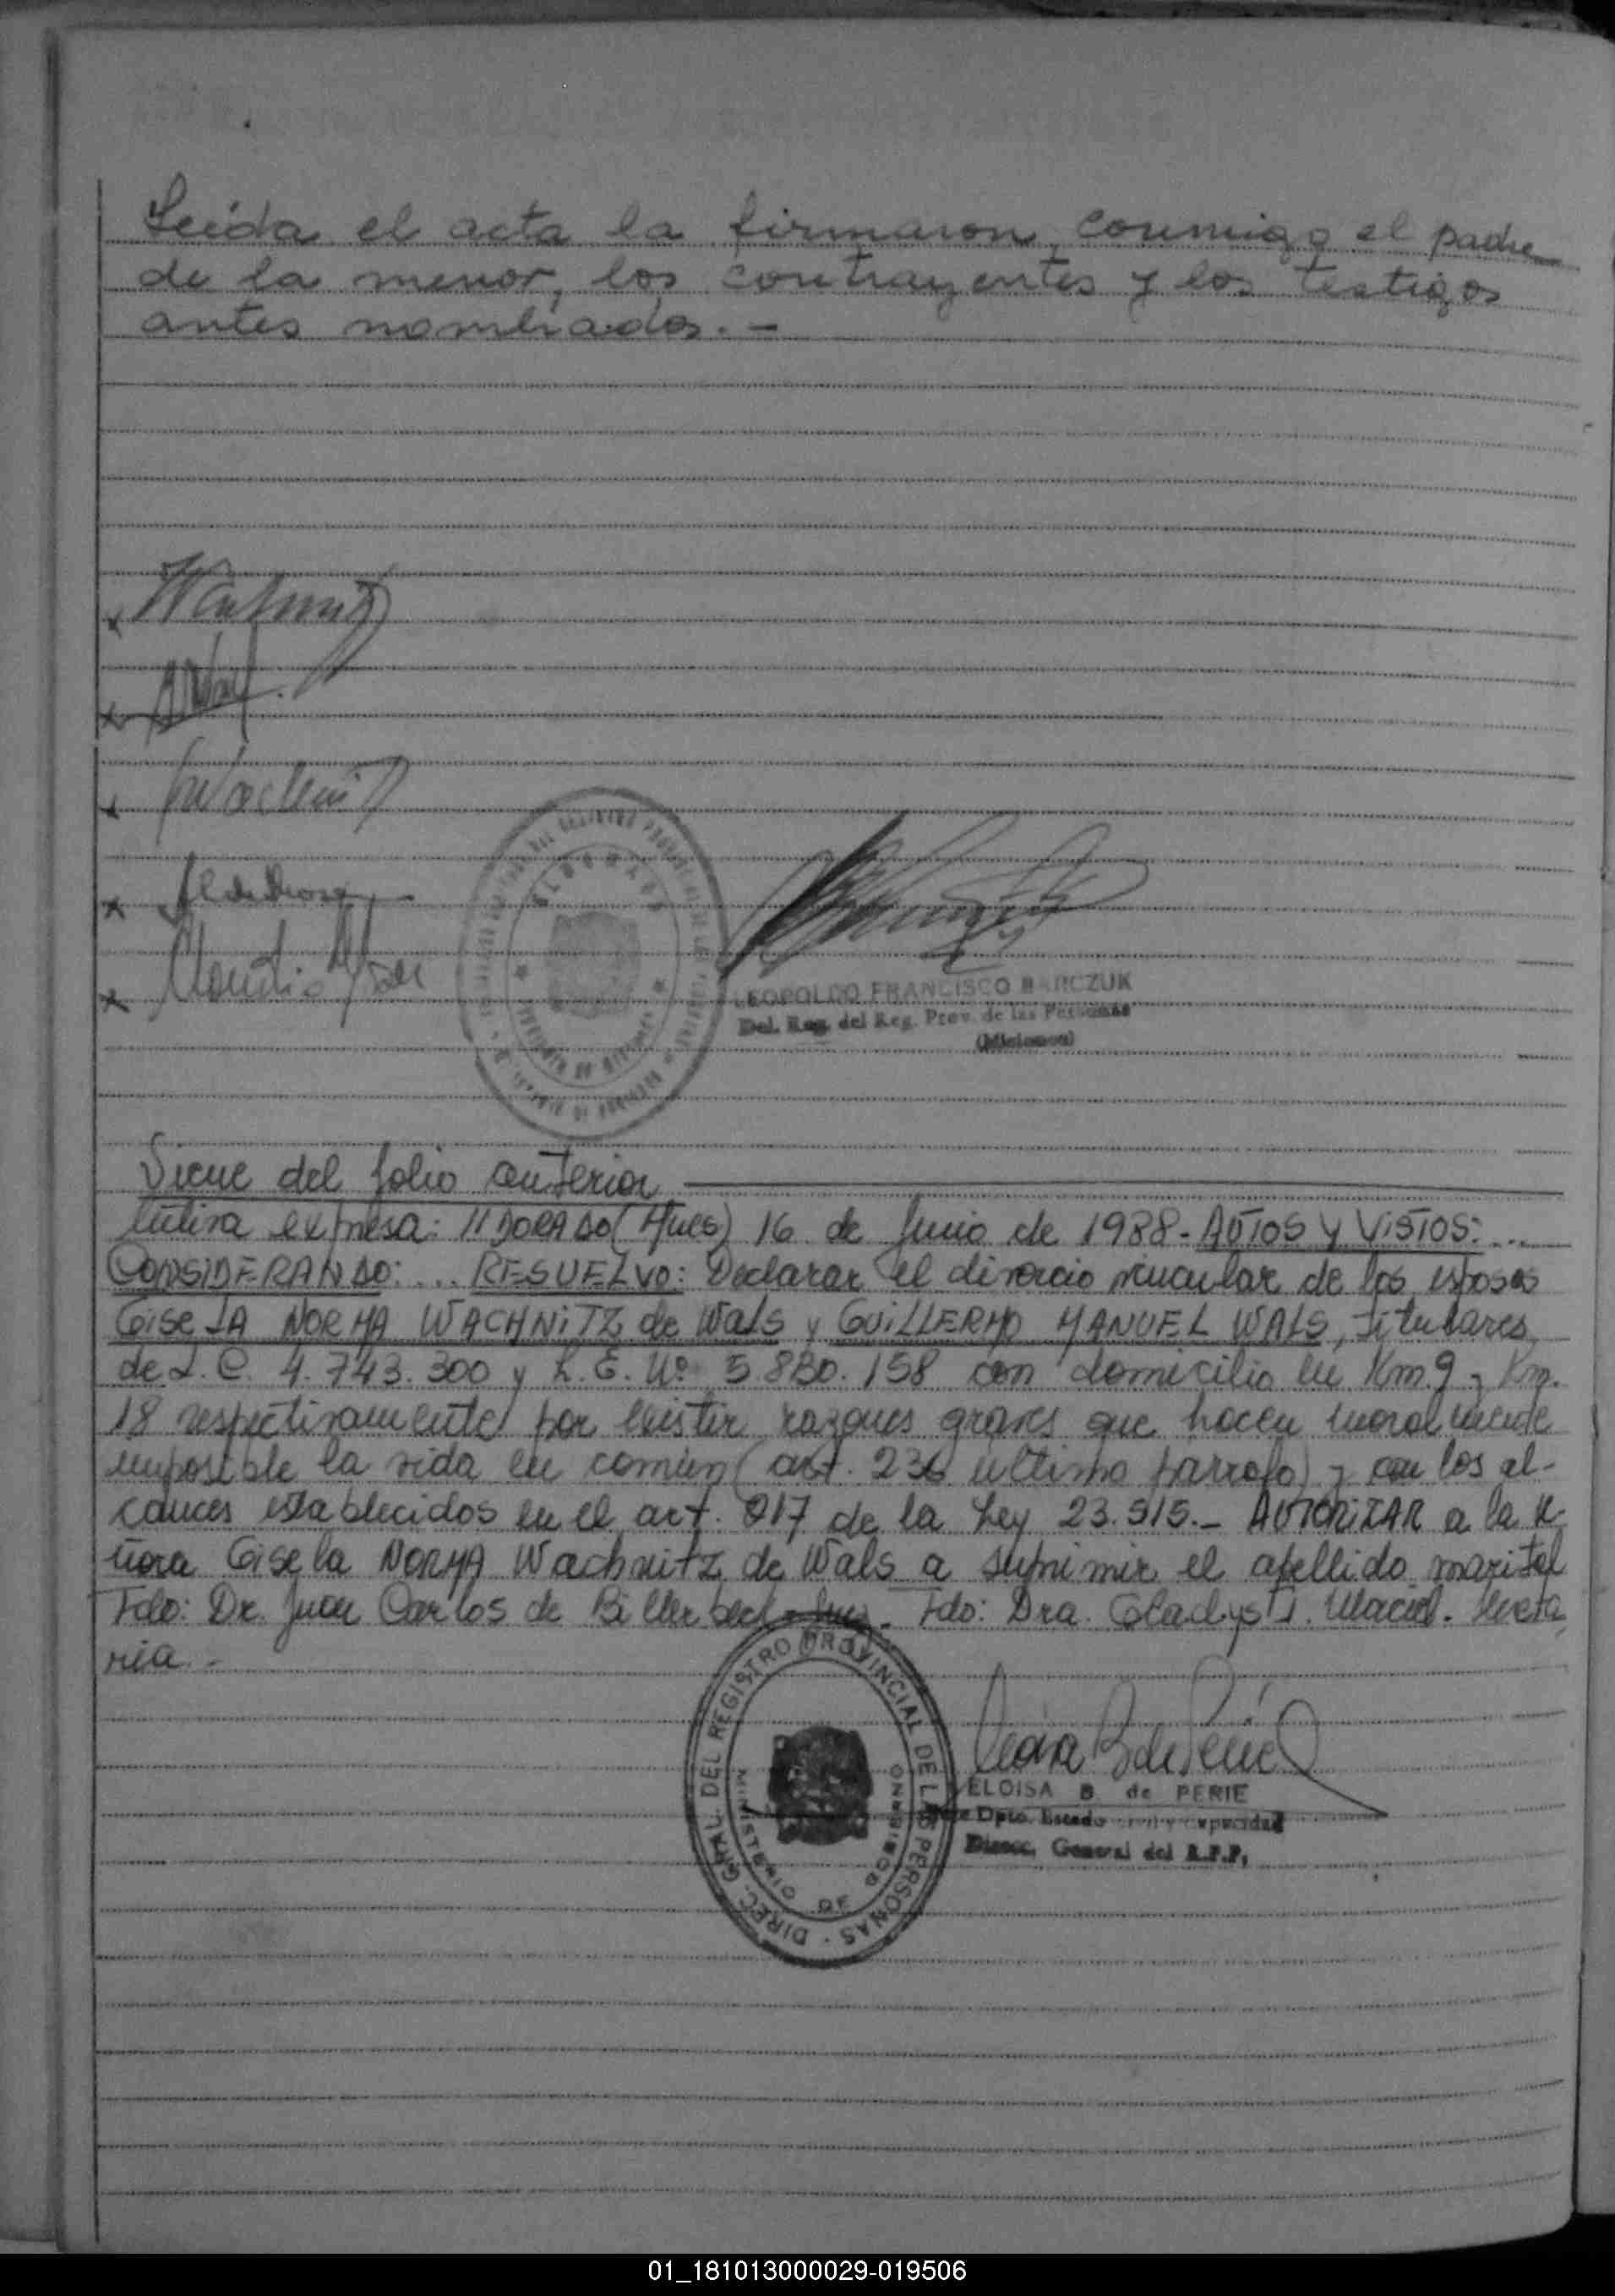 Leída el acta la firmaron conmigo el padre
de la menor, los contrayentes y los testigos
antes nombrados. -
Wachnitz
Wachnitz
Claudio
ELDORADO
LEOPOLDO FRANCISCO BARCZUK
Del. Reg. del Reg. Prov. de las Personas
(Misiones)
Viene del folio anterior
lutiva expresa: ELDORADO (Mnes) 16 de Junio de 1988 - AUTOS Y VISTOS: ...
CONSIDERANDO: ... RESUELVO: Declarar el divorcio vincular de los esposos
GiseLA NORMA WACHNITZ de Wals y GUILLERMO MANUEL WALS, titulares
de L.C. 4.743.300 y L.E. Nº 5.830.158 con domicilio en Km. 9 y Km.
18 respectivamente por existir razones graves que hacen moralmente
imposible la vida en común (art. 236 último párrafo) y con los al-
cances establecidos en el art. 217 de la Ley 23.515.- AUTORIZAR a la se-
ñora Gisela NORMA Wachnitz de Wals a suprimir el apellido marital
Fdo: Dr. Juan Carlos de Billerbeck - Juez. Fdo: Dra. Gladys J. Maciel. Secreta
ria. -
DIREC. GRAL. DEL REGISTRO PROVINCIAL DE LAS PERSONAS
MINISTERIO DE GOBIERNO
ELOISA B de PERIE
Dpto. Estado Civil y Capacidad
Direcc. General del R.P.P.
01_181013000029-019506